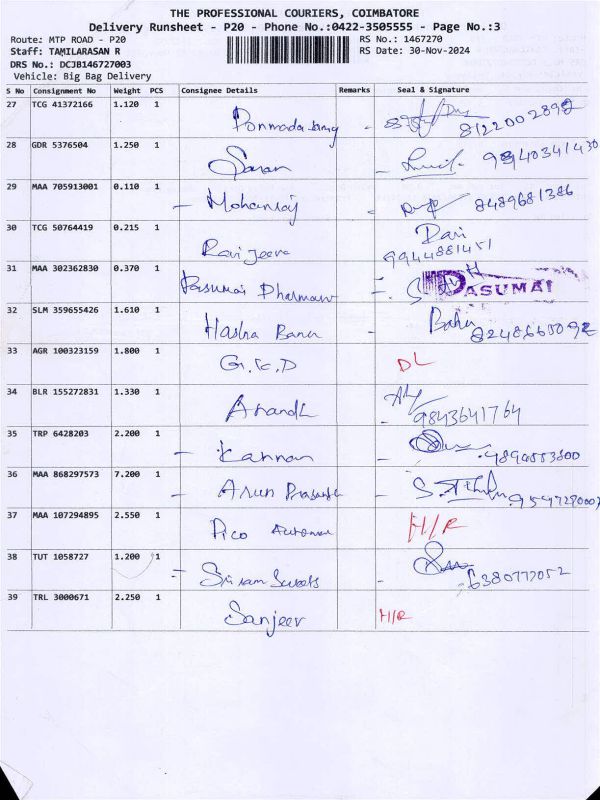 THE PROFESSIONAL COURIERS, COIMBATORE
Delivery Runsheet - P20 - Phone No.:0422-3505555 - Page No.:3
Route: MTP ROAD - P20 RS No.: 1467270
Staff: TAMILARASAN R RS Date: 30-Nov-2024
DRS No.: DCJB146727003
Vehicle: Big Bag Delivery
S No Consignment No Weight PCS Consignee Details Remarks Seal & Signature
27 TCG 41372166 1.120 1
8122002892
28 GDR 5376504 1.250 1 Saran
29 MAA 705913001 0.110 1 - Mohanraj - 8489681386
30 TCG 50764419 0.215 1 Ravi Jeeva
9944881451
31 MAA 302362830 0.370 1 PASUMAI
32 SLM 359655426 1.610 1 -
33 AGR 100323159 1.800 1 G.K.D DL
34 BLR 155272831 1.330 1
9843641764
35 TRP 6428203 2.200 1 - Kannan -
36 MAA 868297573 7.200 1 - Arun -
37 MAA 107294895 2.550 1 Pico H/R
38 TUT 1058727 1.200 1 Sri ram Sweets -
6380777052
39 TRL 3000671 2.250 1 Sanjeev H/R